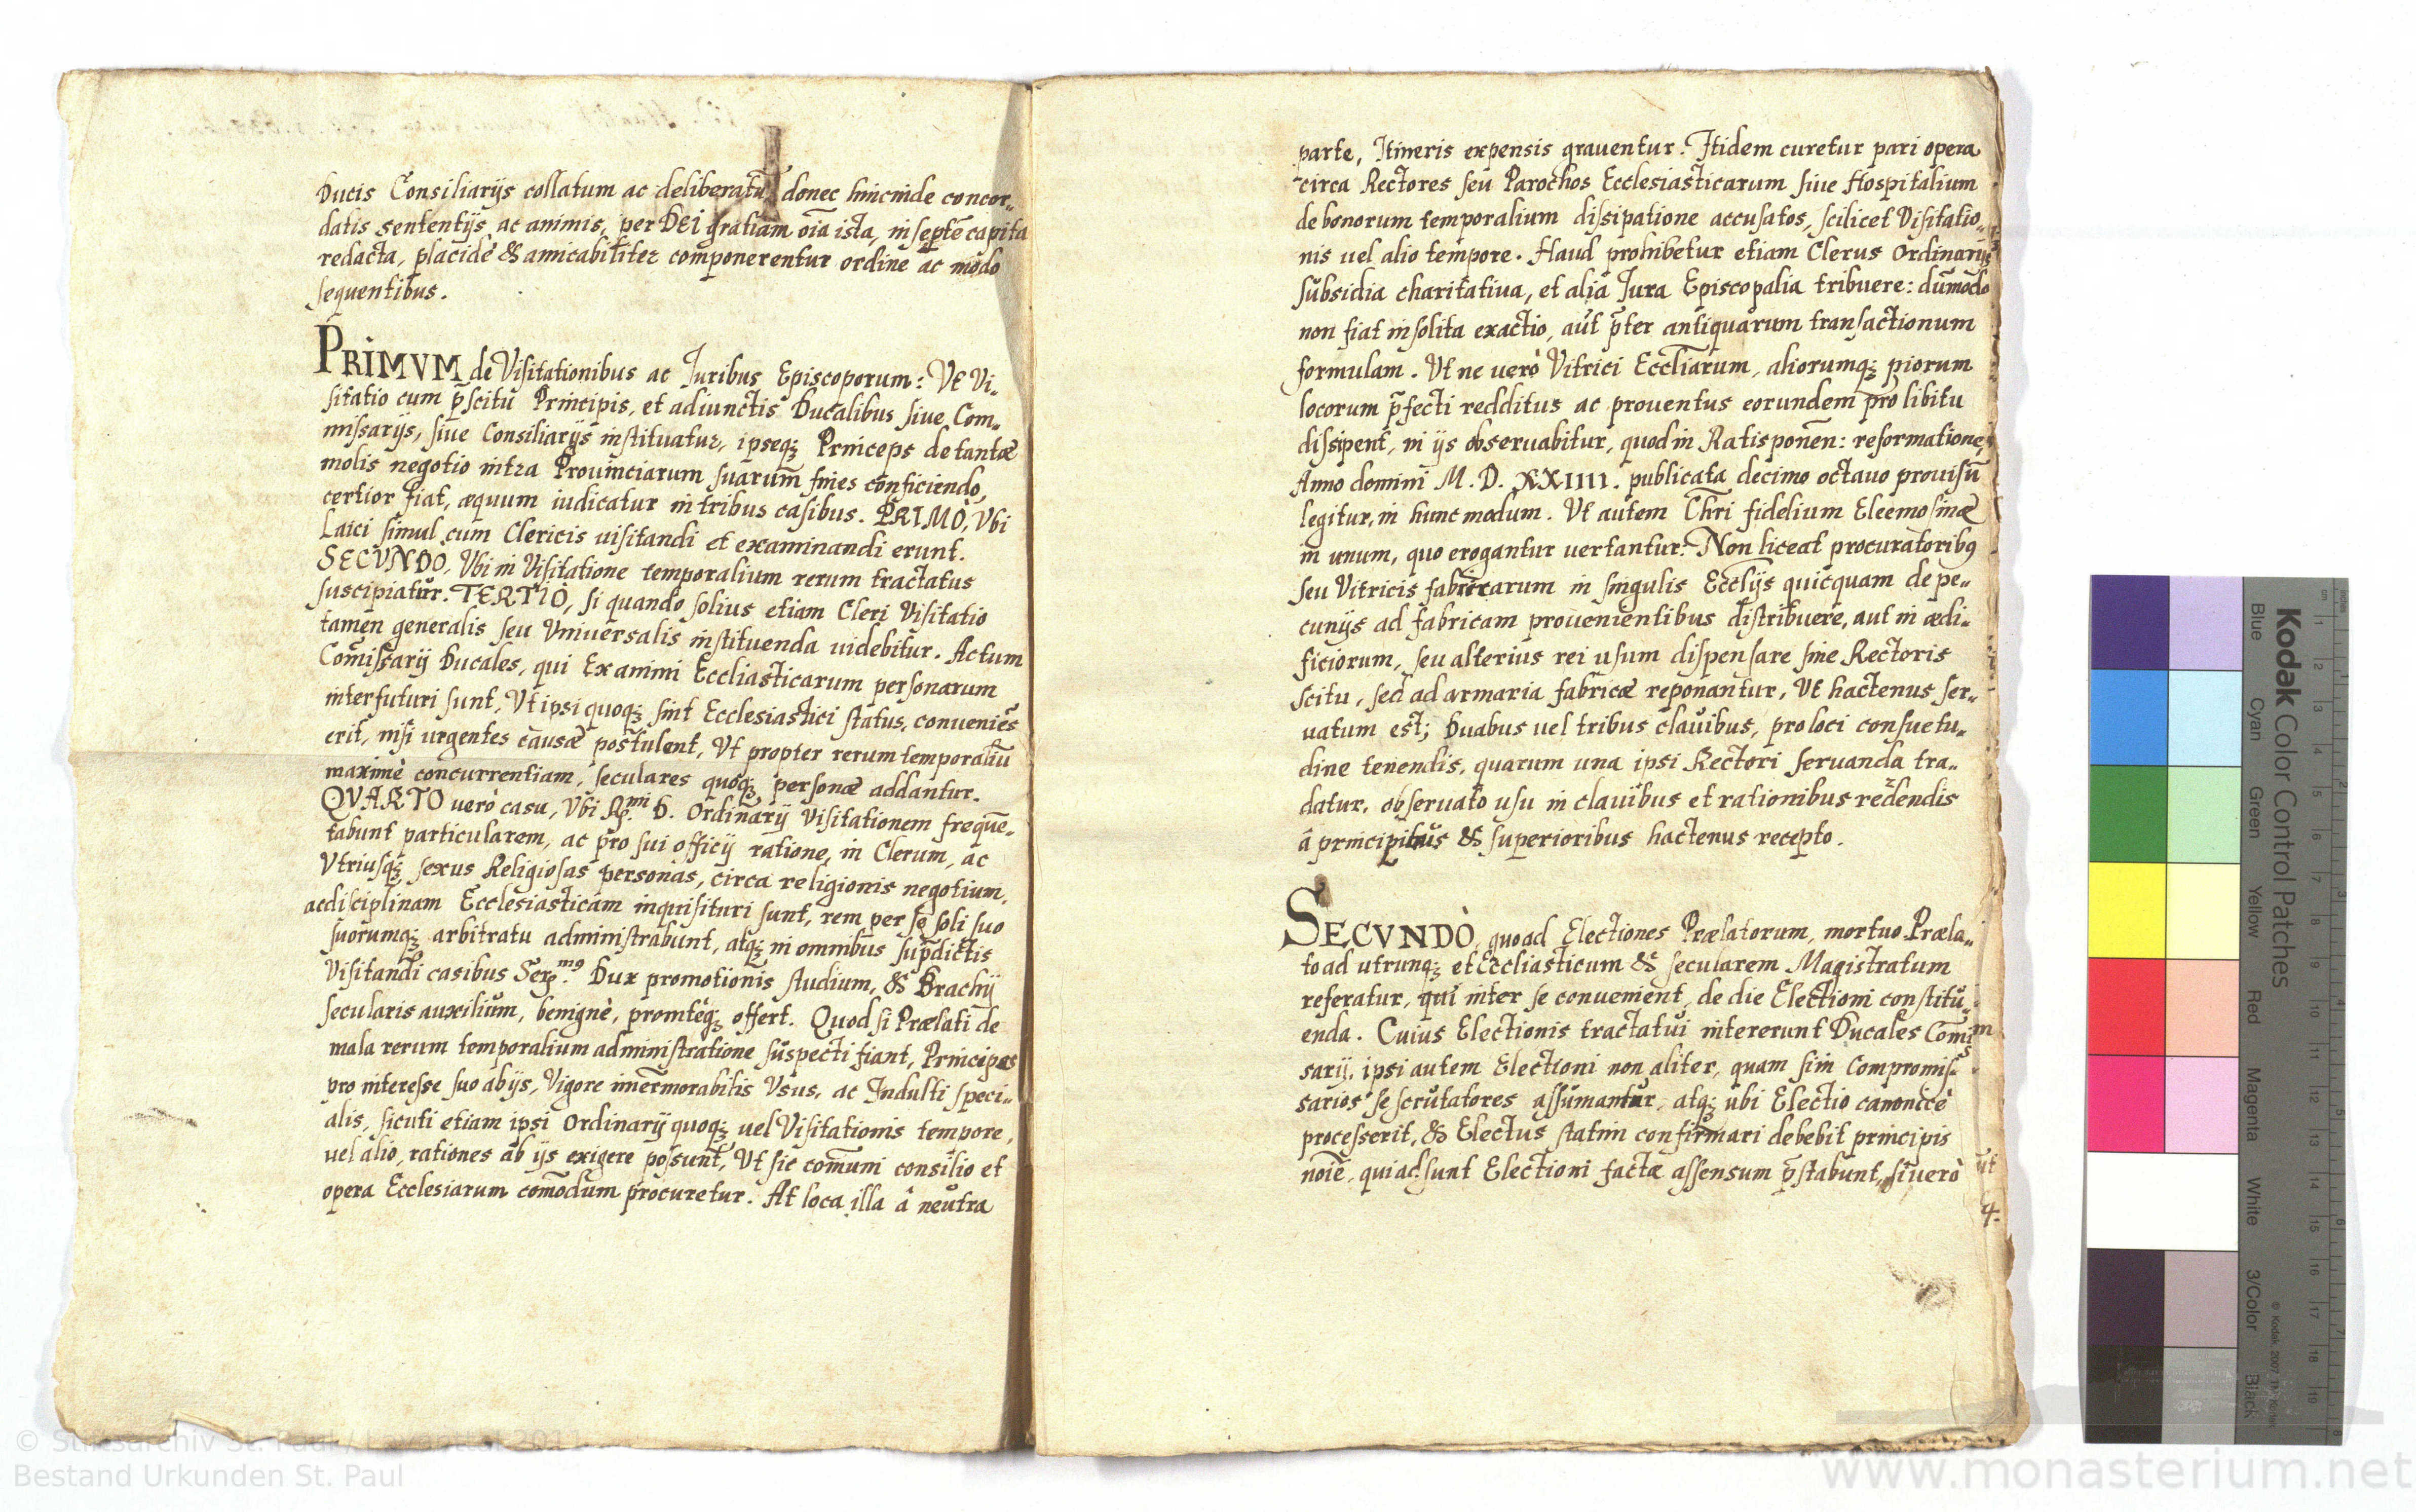 Ducis Consiliarijs collatum ac deliberatū donec hincinde concor„
datis sententijs, ac animis, per DEI gratiam oīa ista, in septē capita
redacta, placidè & amicabiliter componerentur ordine ac modo
sequentibus.
PRIMVM de Visitationibus ac Iuribus Episcoporum: Vt Vi„
sitatio cum p̄scitu Principis, et adiunctis Ducalibus siue Com„
missarijs, siue Consiliarijs instituatur, ipseqꝫ Princeps de tantæ
molis negotio intra Prouinciarum suarum fines conficiendo,
certior fiat, æquum iudicatur in tribus casibus. PRIMÒ, Vbi
Laici simul cum Clericis uisitandi et examinandi erunt.
SECVNDO, Vbi in Visitatione temporalium rerum tractatus
suscipiatur. TERTIÒ, si quando solius etiam Cleri Visitatio
tamen generalis seu Vniuersalis instituenda uidebitur. Actum
Com̄issarij Ducales, qui Examini Eccliasticarum personarum
interfuturi sunt, Vt ipsi quoqꝫ sint Ecclesiastici status, conueniēs
erit, nisi urgentes causæ postulent, Vt propter rerum temporaliū
maximè concurrentiam, seculares quoqꝫ personæ addantur.
QVARTO uerò casu, Vbi Rᵐⁱ D. Ordinarij Visitationem frequē„
tabunt particularem, ac pro sui officij ratione, in Clerum, ac
Vtriusqꝫ sexus Religiosas personas, circa religionis negotium,
ac disciplinam Ecclesiasticam inquisituri sunt, rem per se soli suo
suorumqꝫ arbitratu administrabunt, atqꝫ in omnibus sup̄dictis
Visitandi casibus Serᵐ⁹ Dux promotionis studium, & Brachij
secularis auxilium, benignè, promtèqꝫ offert. Quod si Prælati de
mala rerum temporalium administratione suspecti fiant, Principes
pro interesse suo ab ijs, Vigore immemorabilis Vsus, ac Indulti speci„
alis, sicuti etiam ipsi Ordinarij quoqꝫ uel Visitationis tempore,
uel alio, rationes ab ijs exigere possunt, Vt sic com̄uni consilio et
opera Ecclesiarum com̄odum procuretur. At loca illa â neutra
parte, Itineris expensis grauentur. Itidem curetur pari opera
circa Rectores seu Parochos Ecclesiasticarum siue Hospitalium
de bonorum temporalium dissipatione accusatos, scilicet Visitatio„
nis uel alio tempore. Haud prohibetur etiam Clerus Ordinarijs
subsidia charitatiua, et alia Iura Episcopalia tribuere: dum̄odo
non fiat insolita exactio, aut p̄ter antiquarum transactionum
formulam. Vt ne uerò Vitrici Eccliarum, aliorumqꝫ piorum
locorum p̄fecti redditus ac prouentus eorundem pro libitu
dissipent, in ijs obseruabitur, quod in Ratisponen: reformatione,
Anno domini M. D. XXIIII. publicata decimo octauo prouisū
legitur, in hunc modum. Vt autem Chr̄i fidelium Eleemosinæ
in unum, quo erogantur uertantur: Non liceat procuratoribꝰ
seu Vitricis fabricarum in singulis Ecclijs quicquam de pe„
cunijs ad fabricam prouenientibus distribuere, aut in ædi„
ficiorum, seu alterius rei usum dispensare sine Rectoris
scitu, sed ad armaria fabricæ reponantur, Vt hactenus ser„
uatum est; Duabus uel tribus clauibus, pro loci consuetu„
dine tenendis, quarum una ipsi Rectori seruanda tra„
datur, obseruato usu in clauibus et rationibus reddendis
â principibus & superioribus hactenus recepto.
SECVNDÒ, quoad Electiones Prælatorum, mortuo Præla„
to ad utrunqꝫ et Eccliasticum & secularem Magistratum
referatur, qui inter se conuenient, de die Electioni constitu„
enda. Cuius Electionis tractatui intererunt Ducales Comis
sarij, ipsi autem Electioni non aliter, quam sim Compromis
sarios se scrutatores assumantur, atqꝫ ubi Electio canonicè
processerit, & Electus statim confirmari debebit principis
noīe, qui adsunt Electioni factæ assensum p̄stabunt, si uerò
4.
Kodak Color Control Patches
Blue Cyan Green Yellow Red Magenta White 3/Color Black
© Stiftsarchiv St. Paul / Lavanttal 2011
Bestand Urkunden St. Paul
www.monasterium.net